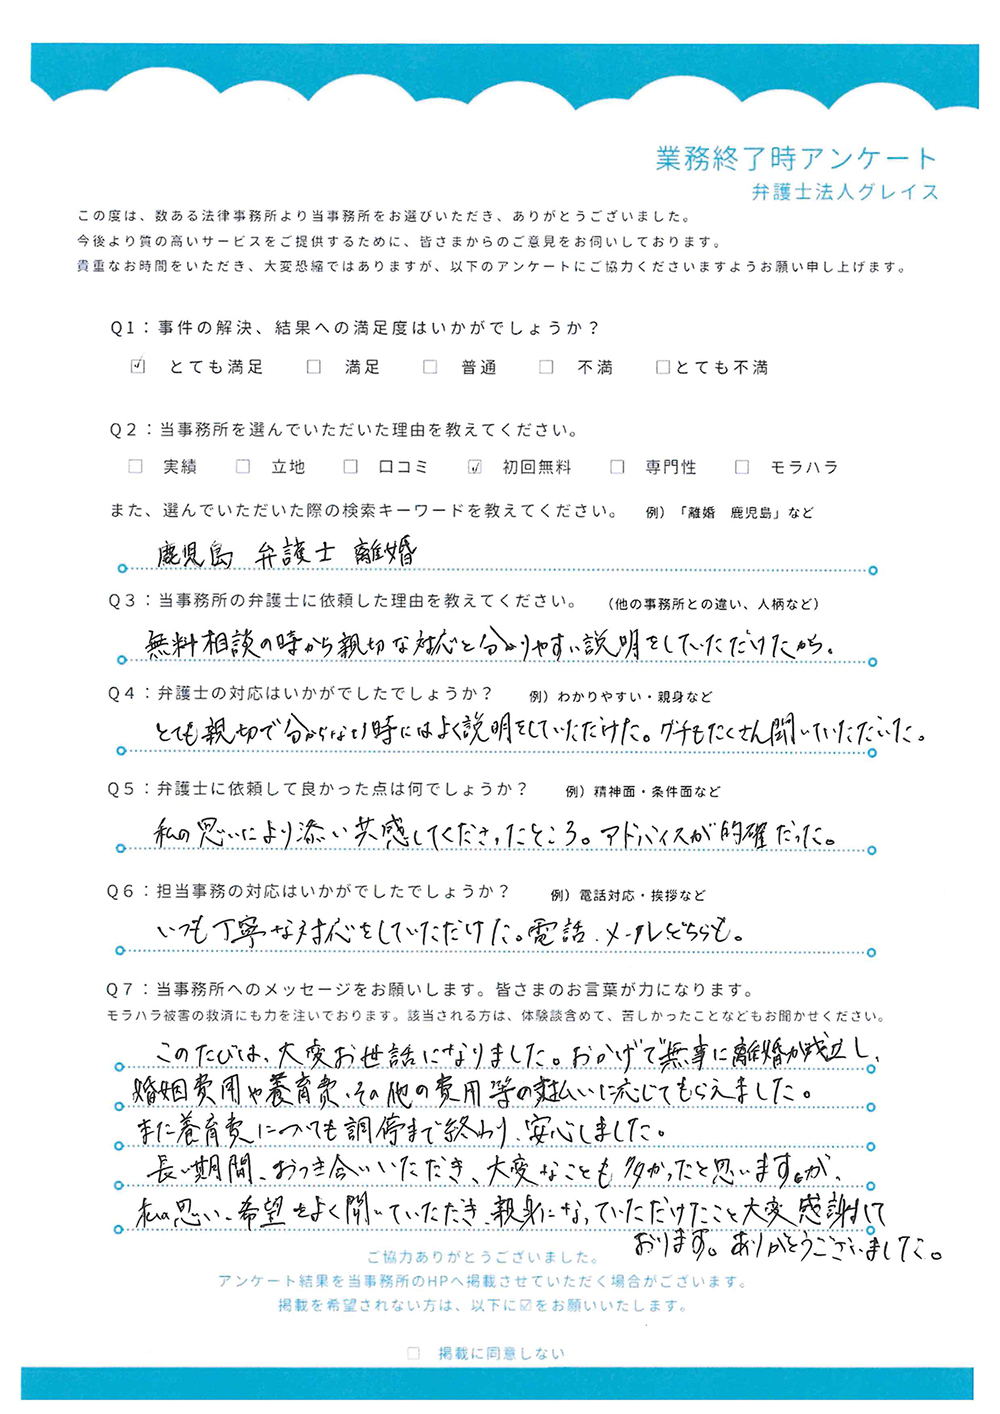 業務終了時アンケート
弁護士法人グレイス
この度は、数ある法律事務所より当事務所をお選びいただき、ありがとうございました。
今後より質の高いサービスをご提供するために、皆さまからのご意見をお伺いしております。
貴重なお時間をいただき、大変恐縮ではありますが、以下のアンケートにご協力くださいますようお願い申し上げます。
Q1：事件の解決、結果への満足度はいかがでしょうか？
☑ とても満足 □ 満足 □ 普通 □ 不満 □とても不満
Q2：当事務所を選んでいただいた理由を教えてください。
□ 実績 □ 立地 □ 口コミ ☑ 初回無料 □ 専門性 □ モラハラ
また、選んでいただいた際の検索キーワードを教えてください。 例）「離婚 鹿児島」など
鹿児島 弁護士 離婚
Q3：当事務所の弁護士に依頼した理由を教えてください。 （他の事務所との違い、人柄など）
無料相談の時から親切な対応と分かりやすい説明をしていただけたから。
Q4：弁護士の対応はいかがでしたでしょうか？ 例）わかりやすい・親身など
とても親切で分からない時にはよく説明をしていただけた。グチもたくさん聞いていただいた。
Q5：弁護士に依頼して良かった点は何でしょうか？ 例）精神面・条件面など
私の思いにより添い共感してくださったところ。アドバイスが的確だった。
Q6：担当事務の対応はいかがでしたでしょうか？ 例）電話対応・挨拶など
いつも丁寧な対応をしていただけた。電話、メールどちらも。
Q7：当事務所へのメッセージをお願いします。皆さまのお言葉が力になります。
モラハラ被害の救済にも力を注いでおります。該当される方は、体験談含めて、苦しかったことなどもお聞かせください。
このたびは、大変お世話になりました。おかげで無事に離婚が成立し、
婚姻費用や養育費、その他の費用等の支払いに応じてもらえました。
また養育費についても調停まで終わり、安心しました。
長い期間、おつき合いいただき、大変なことも多かったと思いますが、
私の思い、希望をよく聞いていただき、親身になっていただけたこと大変感謝して
おります。ありがとうございました。
ご協力ありがとうございました。
アンケート結果を当事務所のHPへ掲載させていただく場合がございます。
掲載を希望されない方は、以下に☑をお願いいたします。
□ 掲載に同意しない